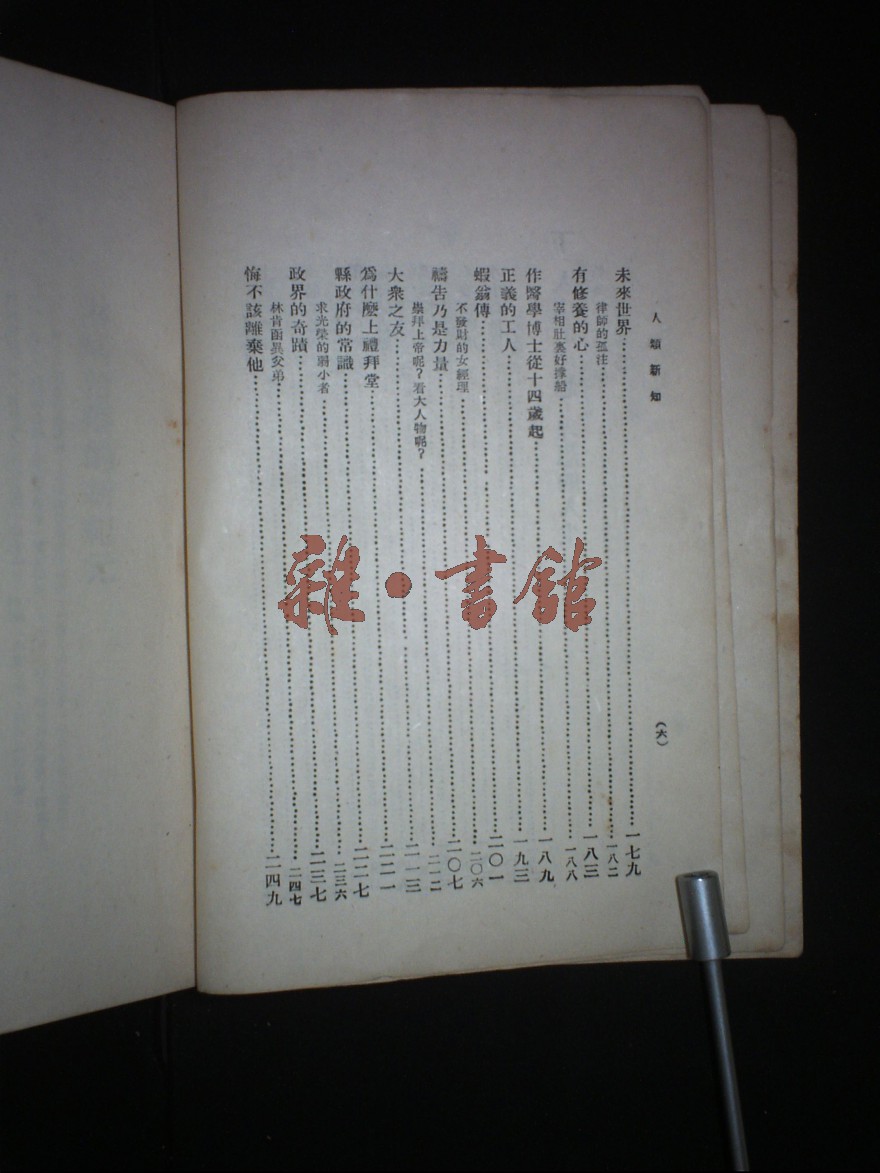 人類新知
(六)
未來世界……一七九
律師的孤注……一八二
有修養的心……一八三
宰相肚裏好撑船……一八八
作醫學博士從十四歲起……一八九
正義的工人……一九三
蝦翁傳……二〇一
不發財的女經理……二〇六
禱告乃是力量……二〇七
崇拜上帝呢?看大人物呢?……二一二
大衆之友……二一三
爲什麽上禮拜堂……二二一
縣政府的常識……二二七
求光榮的弱小者……二三六
政界的奇蹟……二三七
林肯函異父弟……二四七
悔不該離棄他……二四九
雜·書館